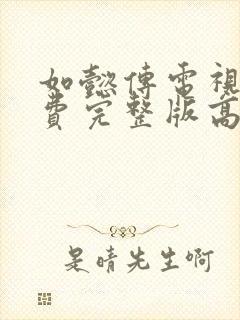 如懿傳電視
費完整版高
是晴先生啊